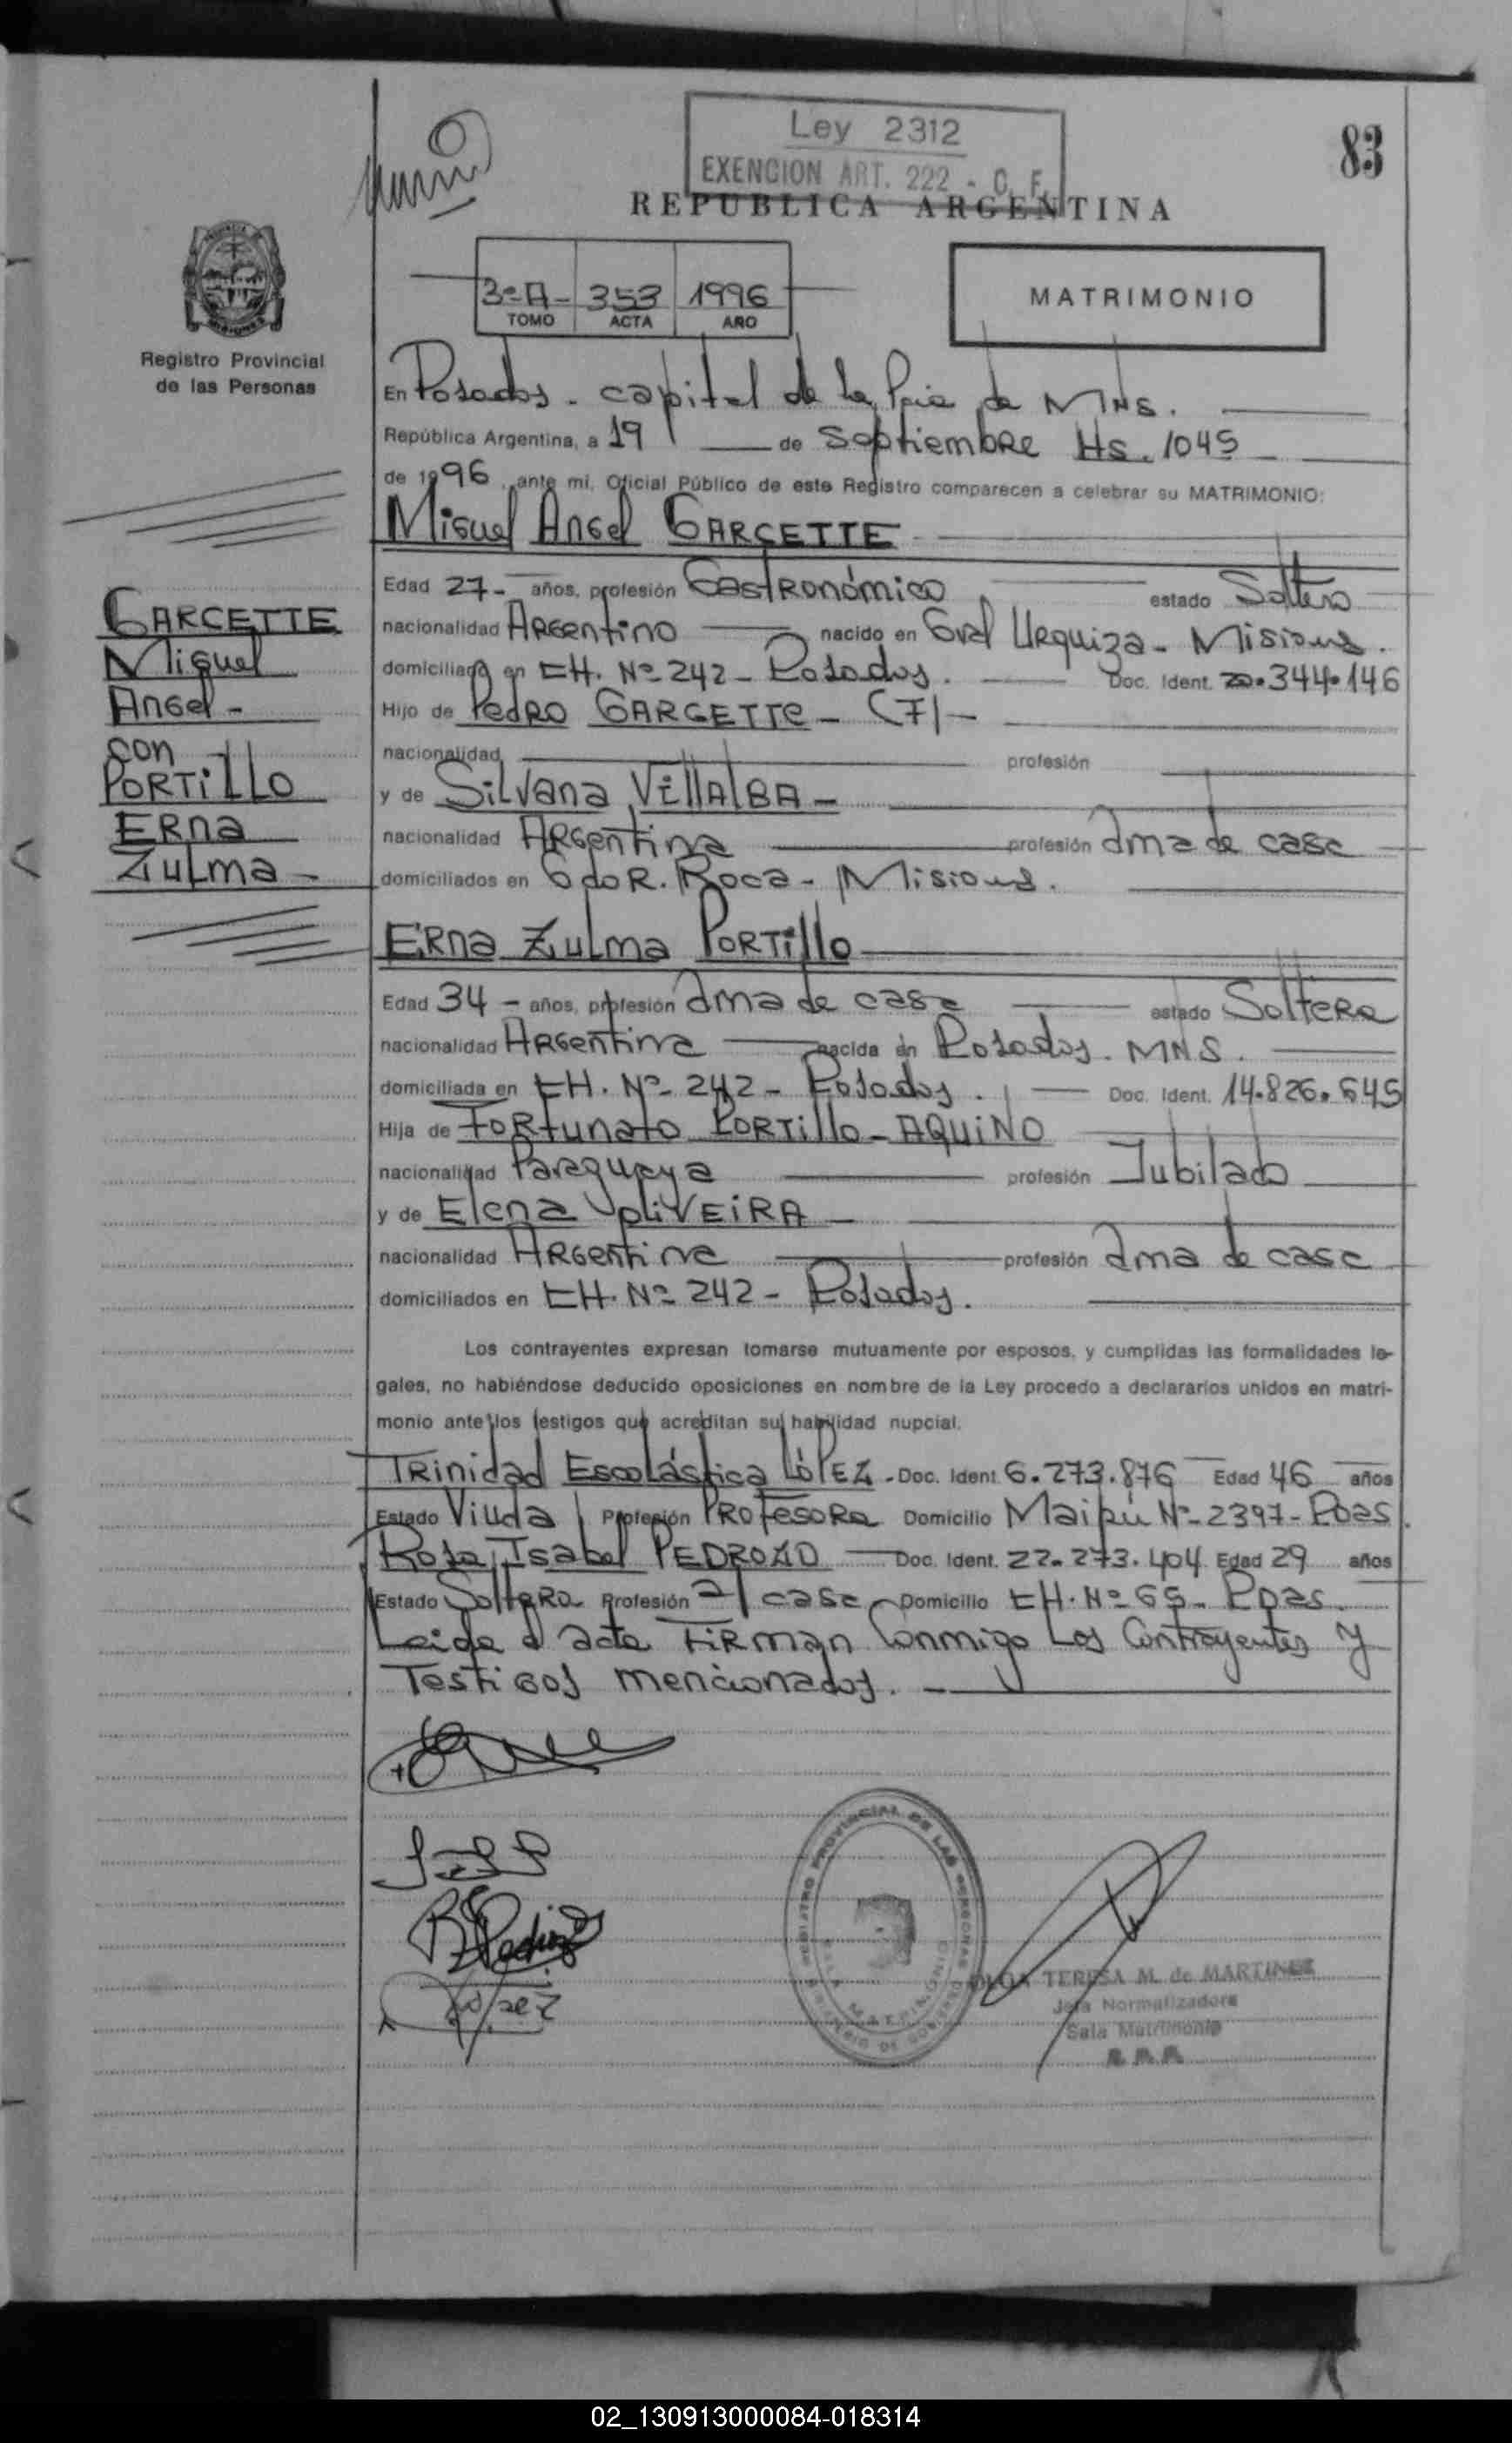 Ley 2312
EXENCION ART. 222 - C. F.
83
REPUBLICA ARGENTINA
3º A- 353 1996
TOMO ACTA AÑO
MATRIMONIO
Registro Provincial
de las Personas
En Posadas - capital de la Pcia de MNS.
República Argentina, a 19 de Septiembre Hs. 1045
de 1996, ante mi, Oficial Público de este Registro comparecen a celebrar su MATRIMONIO:
Miguel Angel GARCETTE
Edad 27- años, profesión Gastronómico estado Soltero
nacionalidad Argentino nacido en Gral Urquiza - Misiones.
domiciliado en CH. Nº 242 - Posadas. Doc. Ident. 20.344.146
Hijo de Pedro GARCETTE -
nacionalidad profesión
y de Silvana VillALBA -
nacionalidad Argentina profesión ama de casa
domiciliados en Gdor. Roca - Misiones.
GARCETTE
Miguel
Angel -
con
PORTillO
Erna
Zulma -
Erna Zulma PORTillo
Edad 34 - años, profesión ama de casa estado Soltera
nacionalidad Argentina nacida en Posadas. MNS.
domiciliada en CH. Nº 242 - Posadas. Doc. Ident. 14.826.645
Hija de Fortunato PORTillo - AQUINO
nacionalidad Paraguaya profesión Jubilado
y de Elena OLIVEIRA -
nacionalidad Argentina profesión ama de casa
domiciliados en CH. Nº 242 - Posadas.
Los contrayentes expresan tomarse mutuamente por esposos, y cumplidas las formalidades le-
gales, no habiéndose deducido oposiciones en nombre de la Ley procedo a declararlos unidos en matri-
monio ante los testigos que acreditan su habilidad nupcial.
Trinidad Escolástica LÓPEZ - Doc. Ident. 6.273.876 Edad 46 años
Estado Viuda Profesión Profesora Domicilio Maipú Nº 2397 - Pdas.
Rosa Isabel PEDROZO Doc. Ident. 22.273.404 Edad 29 años
Estado Soltera Profesión a/ casa Domicilio CH. Nº 69 - Pdas.
Leida el acta firman conmigo los contrayentes y
Testigos mencionados. -
REGISTRO PROVINCIAL DE LAS PERSONAS
MATRIMONIO
MINISTERIO DE GOBIERNO
OLGA TERESA M. de MARTINEZ
Jefa Normalizadora
Sala Matrimonio
02_130913000084-018314